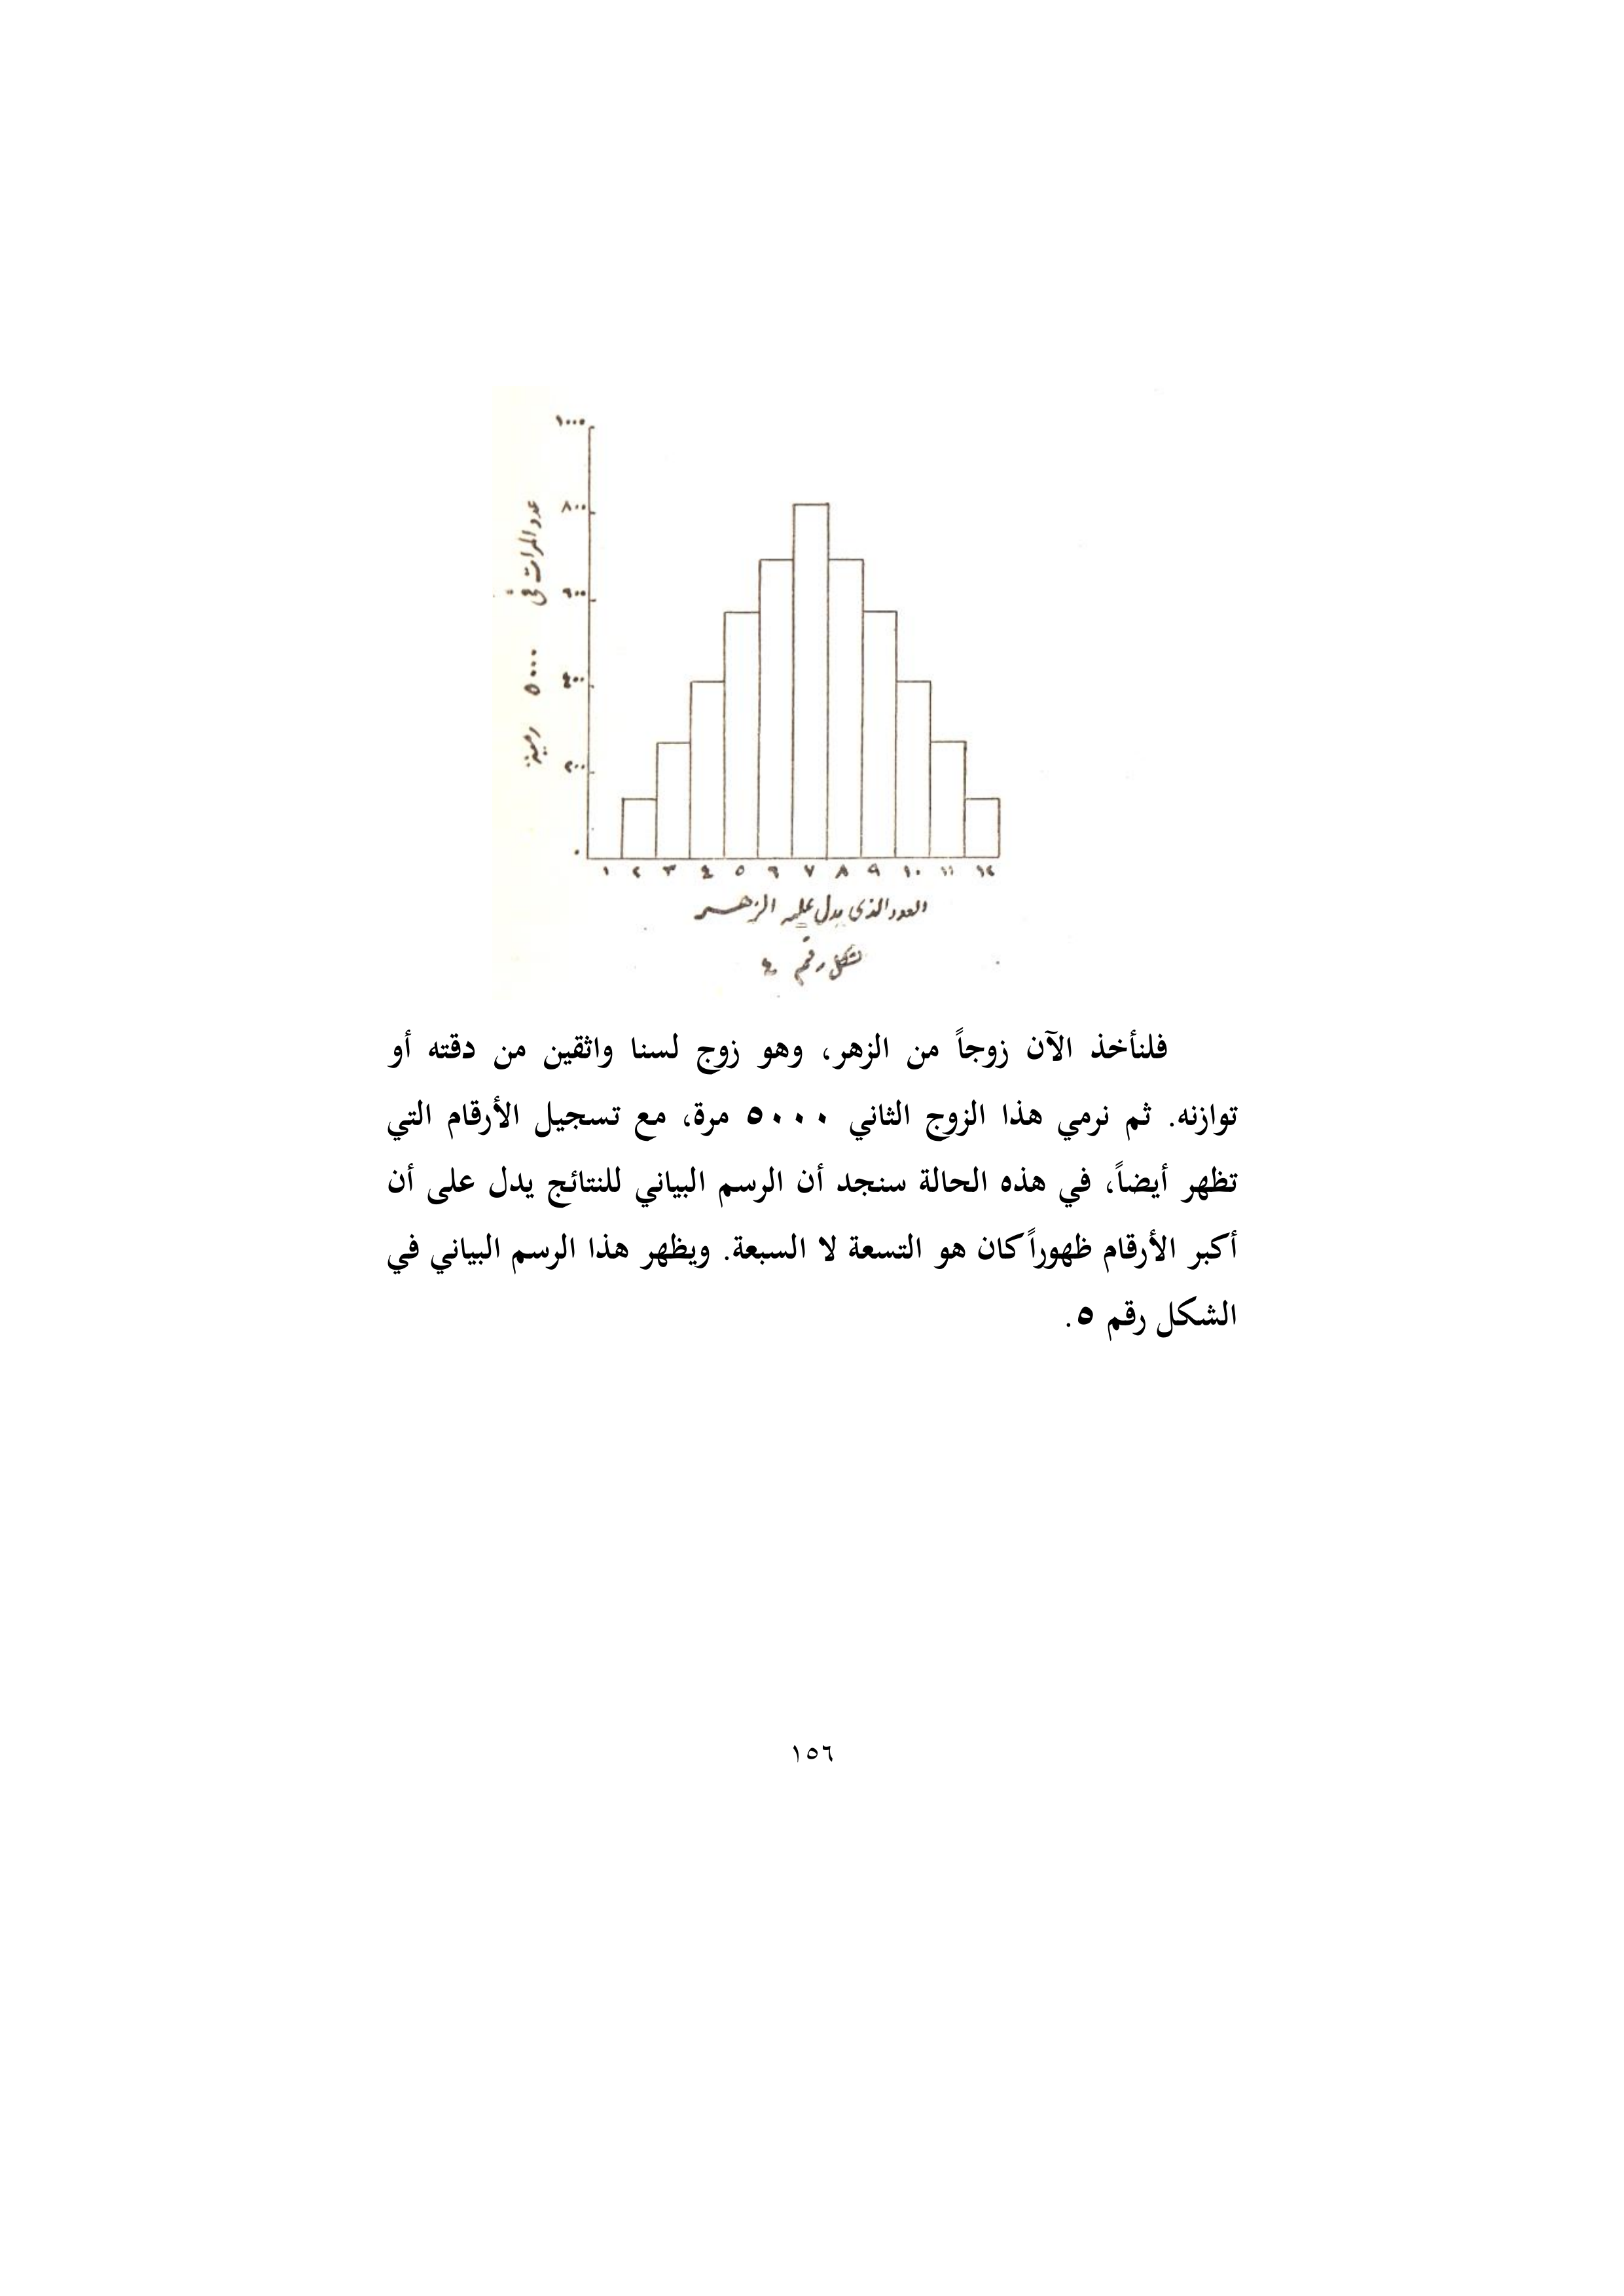 ١٠٠٠
٨٠٠
٦٠٠
٤٠٠
٢٠٠
٠
عدد المرات في ٥٠٠٠ رمية
١ ٢ ٣ ٤ ٥ ٦ ٧ ٨ ٩ ١٠ ١١ ١٢
العدد الذى يدل عليه الزهر
شكل رقم ٤
فلنأخذ الآن زوجاً من الزهر، وهو زوج لسنا واثقين من دقته أو
توازنه. ثم نرمي هذا الزوج الثاني ٥٠٠٠ مرة، مع تسجيل الأرقام التي
تظهر أيضاً، في هذه الحالة سنجد أن الرسم البياني للنتائج يدل على أن
أكبر الأرقام ظهوراً كان هو التسعة لا السبعة. ويظهر هذا الرسم البياني في
الشكل رقم ٥.
١٥٦